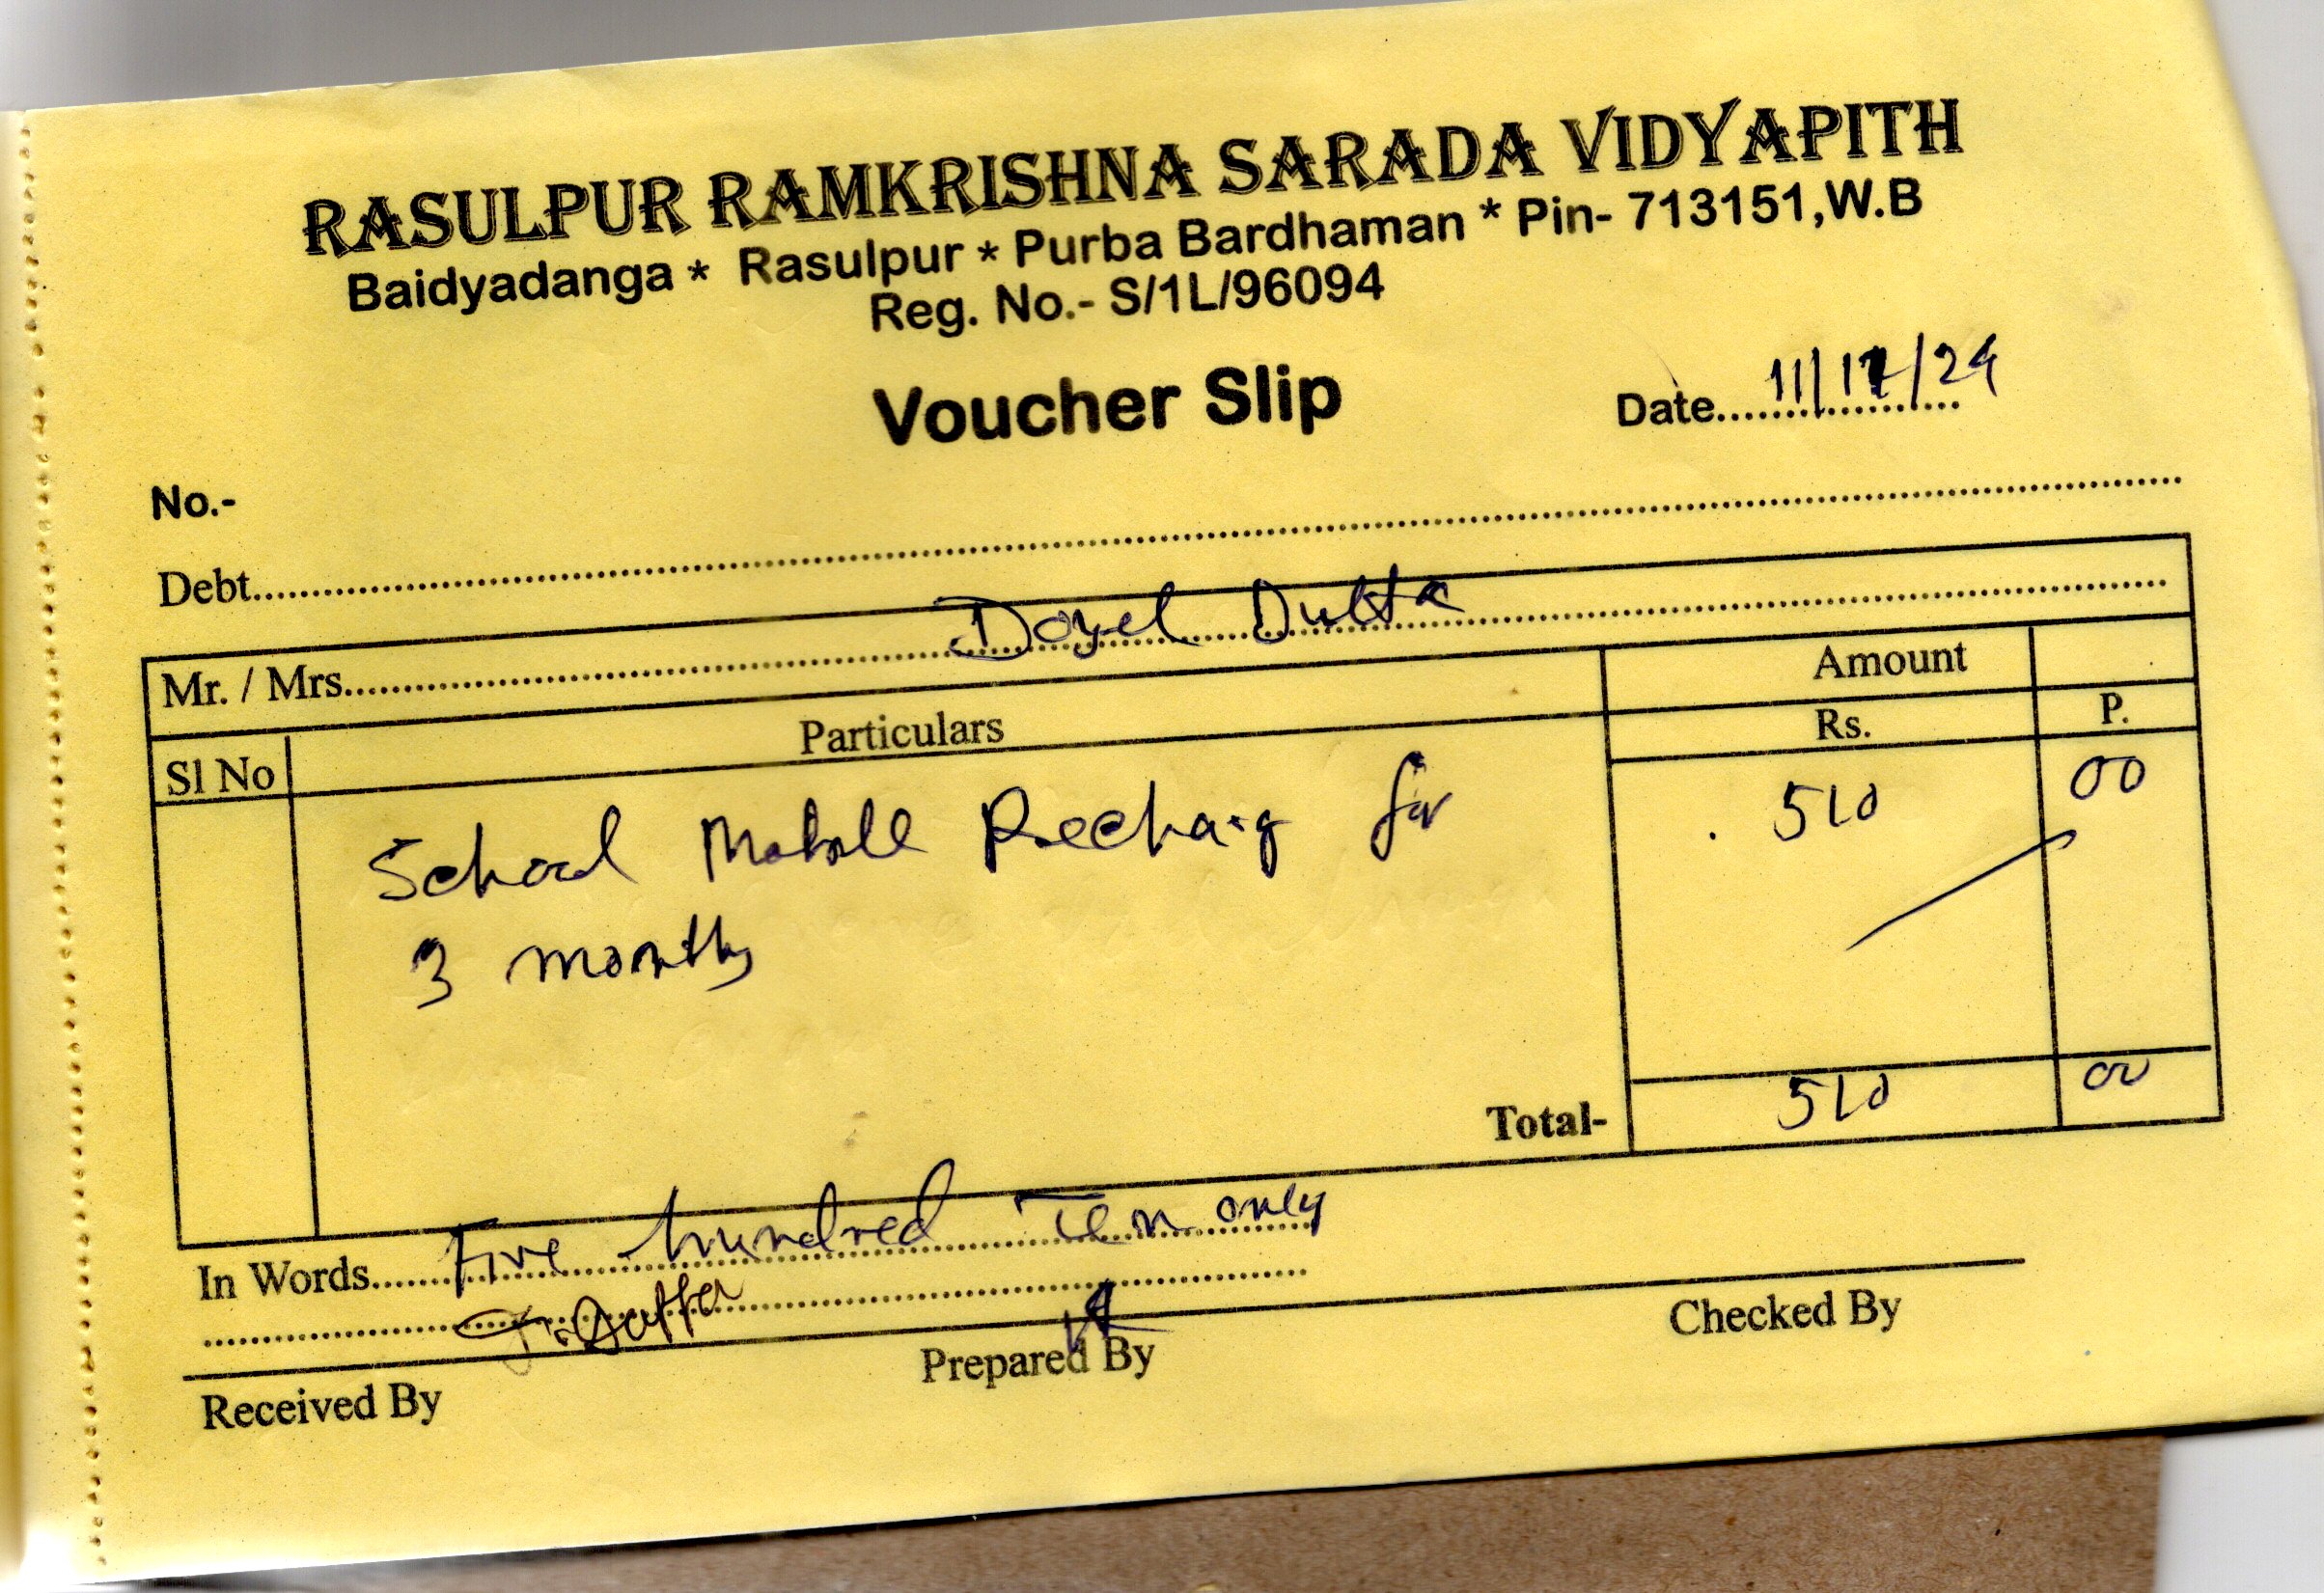 RASULPUR RAMKRISHNA SARADA VIDYAPITH
Baidyadanga * Rasulpur * Purba Bardhaman * Pin- 713151,W.B
Reg. No.- S/1L/96094
Voucher Slip
Date 11/12/24
No.-
Debt
Mr. / Mrs. Doyel Dutta
Sl No Particulars Amount
Rs. P.
School Mobile Recharg for 510 00
3 months
Total- 510 00
In Words Five hundred Ten only
Received By Prepared By Checked By